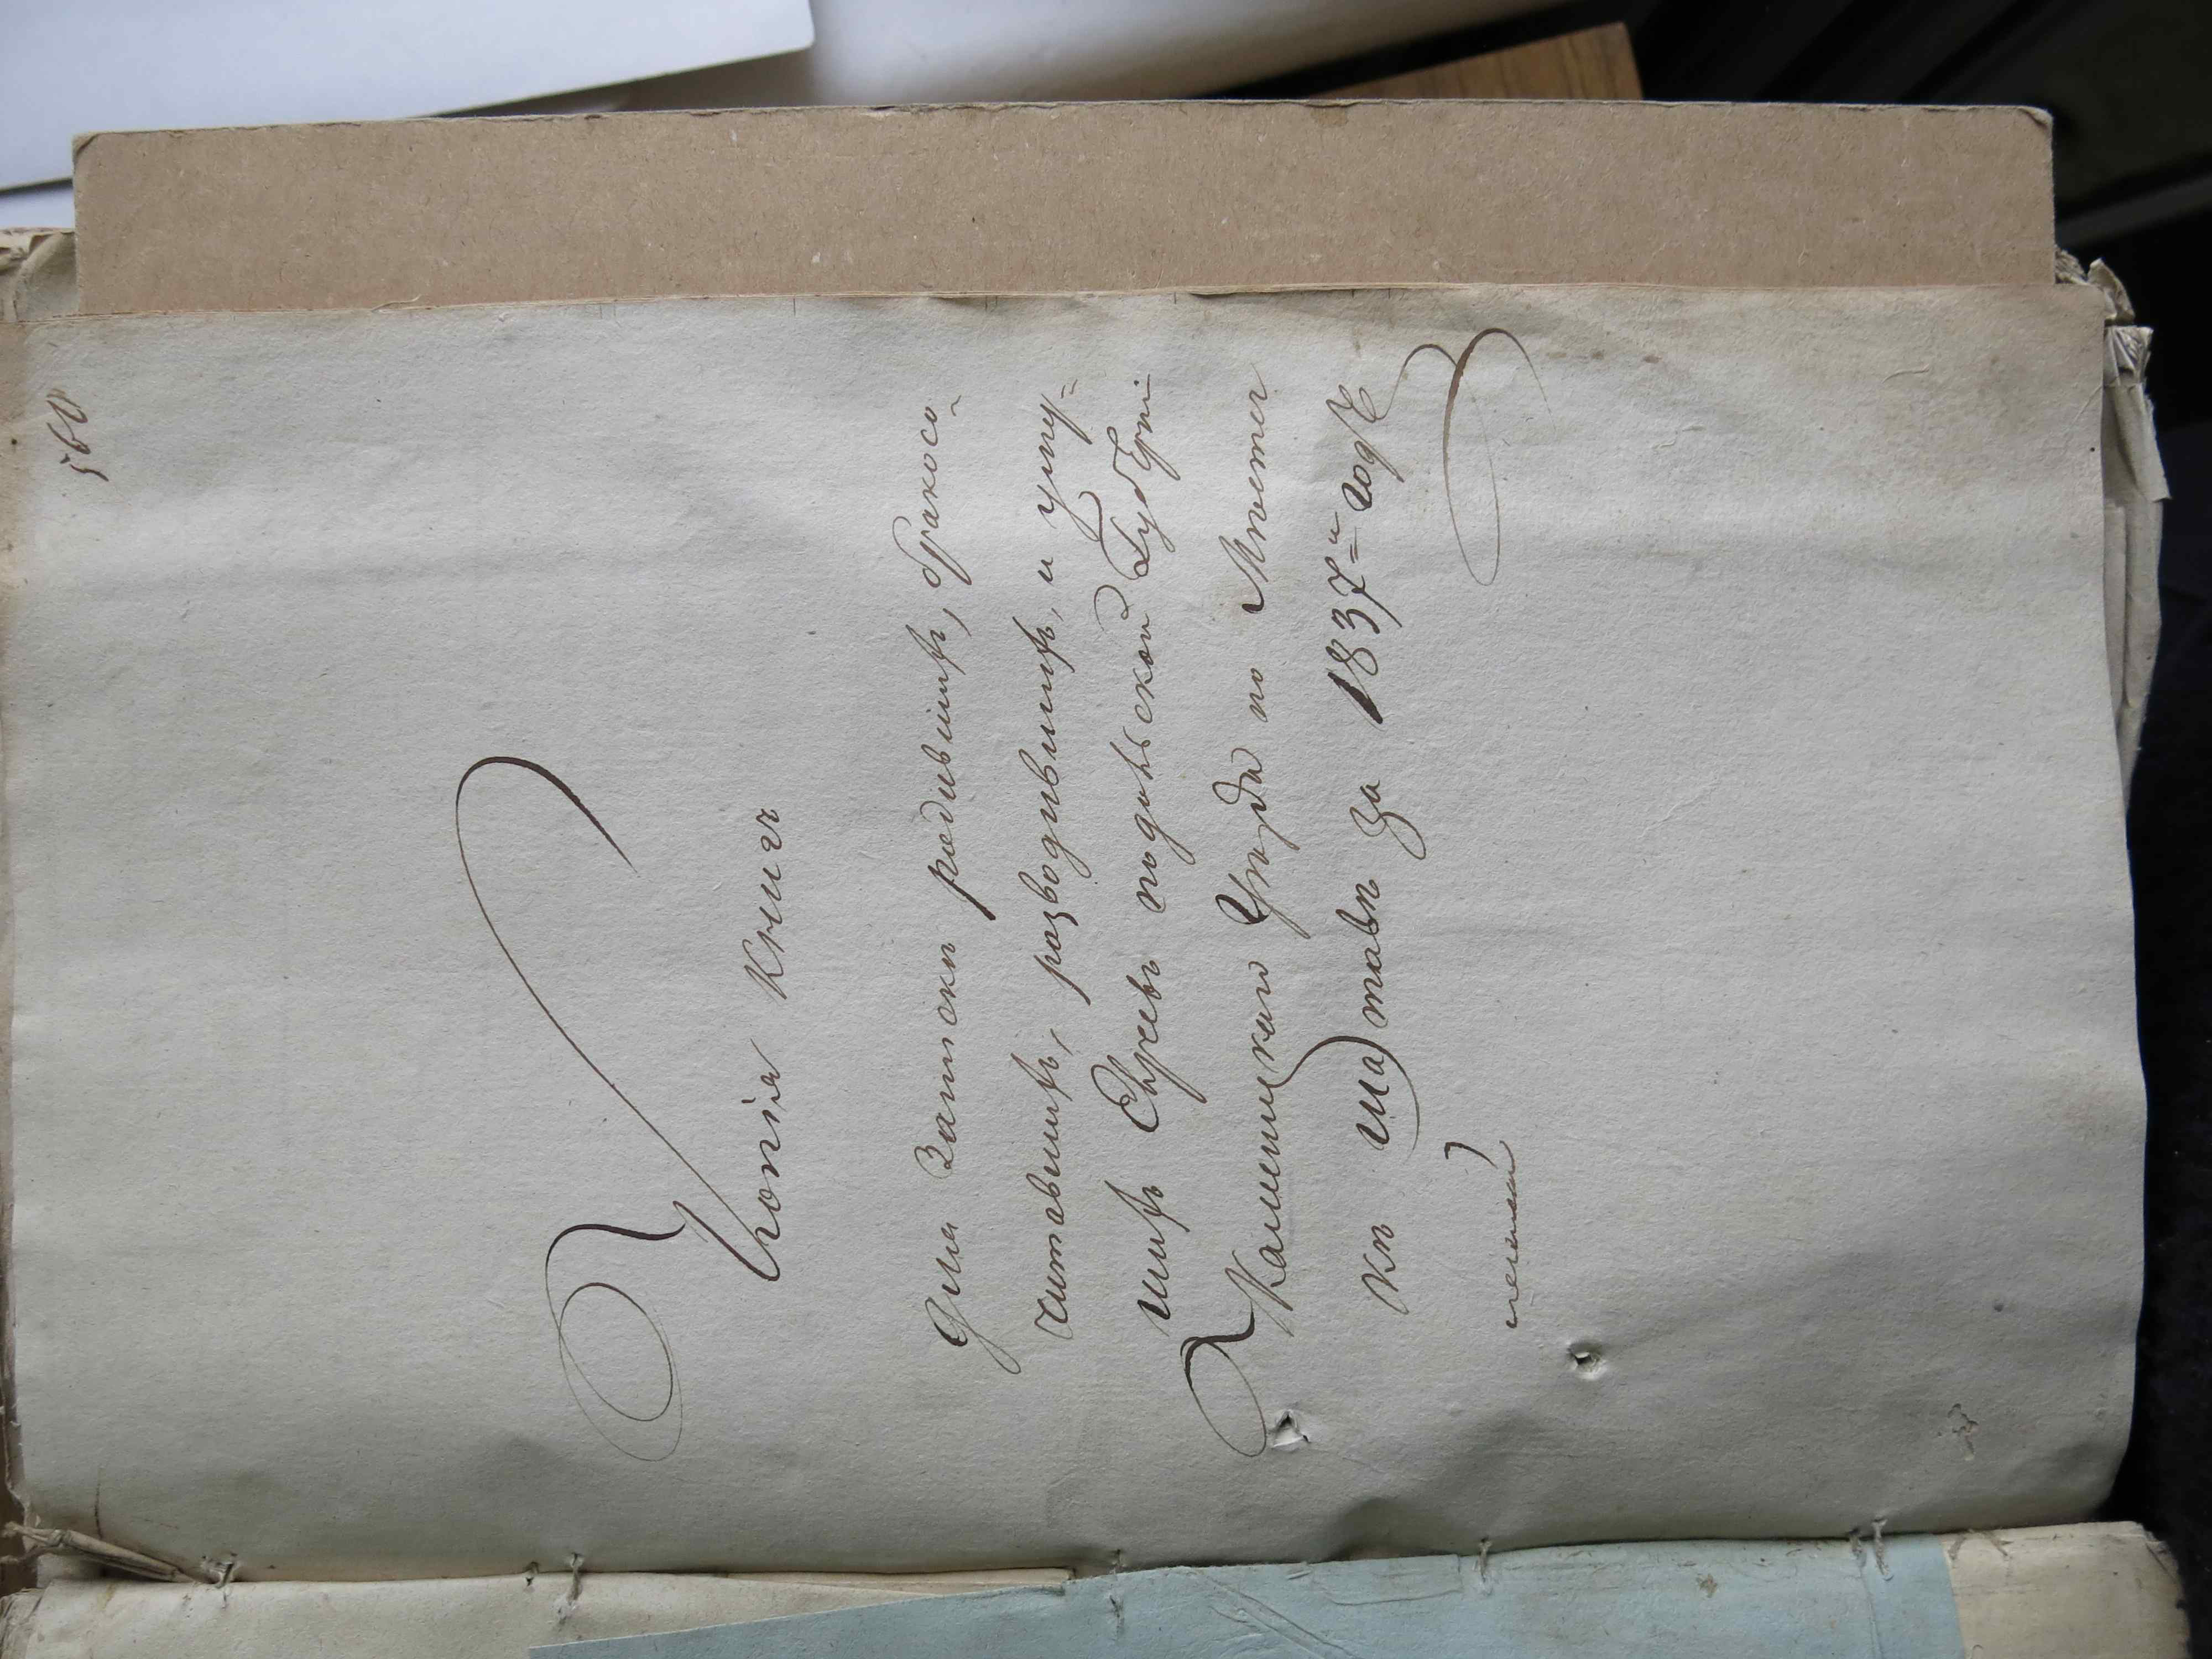 560
Копія Книги
Для Записки родившихъ, бракосо-
читавшихъ, разводившихъ, и умер=
шихъ Евреевъ подольской Губерні
Каменецкаго Уезда по Местеч
къ шатавъ За 1837=й годъ